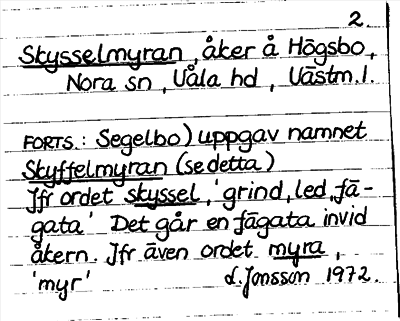 2.
Skysselmyran, åker å Högsbo,
Nora sn, Våla hd, Västm. l.
FORTS.: Segelbo) uppgav namnet
Skyffelmyran (se detta)
Jfr ordet skyssel, 'grind, led, fä-
gata' Det går en fägata invid
åkern. Jfr även ordet myra,
'myr' d. Jonsson 1972.